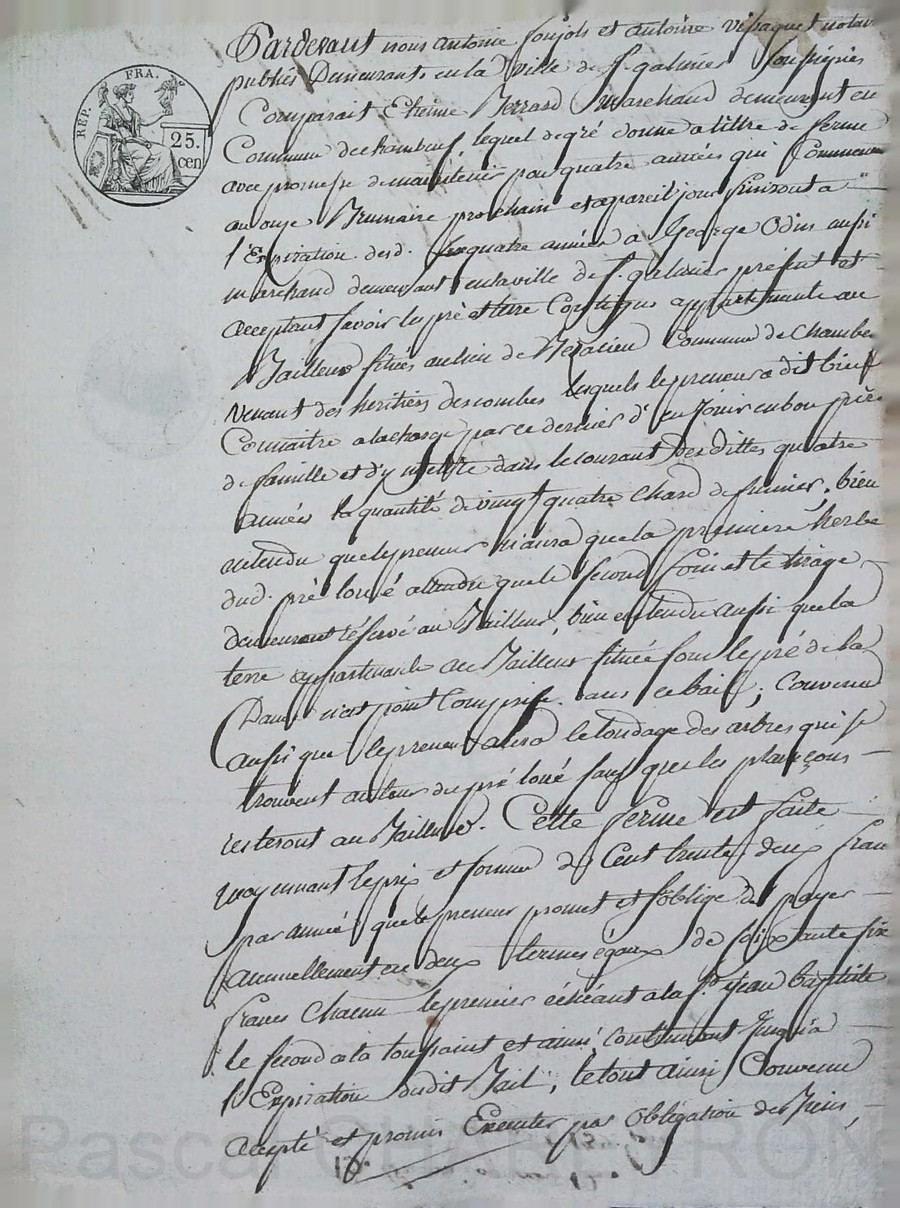 REP. FRA.
25.
cen
Pardevant nous antoine Soujols et antoine Vissaguet notai
publics Demeurants en la Ville de St. galmier Soussignés
Comparait Etienne Berrard Marchand demeurant en
Commune de chambeuf, lequel de gré donne a titre de ferme
avec promesse de maintenir pour quatre années qui Commence
au onze Brumaire prochain et a pareil jour finiront a
l'Expiration desd. quatre années a George Odin aussi
marchand demeurant en la ville de St. galmier présent et
acceptant Savoir les pré et terre Contigus appartenants au
Bailleur situés au lieu de Commune de Chambe
venant des heritiers descombes lesquels le preneur a dit bien
Connaitre a la charge par ce dernier d'en Jouir en bon père
de famille et d'y mettre dans le courant des dittes quatre
années la quantité de vingt quatre chard de fumier, bien
entendu que le preneur n'aura que la première herbe
dud. pré loué attendu que le Second foin et le tirage
demeurent réservé au Bailleur, bien entendu aussi que la
terre appartenante au Bailleur située sous le pré de la
Dame n'est point Comprise dans ce bail; Convenu
aussi que le preneur aura le tondage des arbres qui se
trouvent autour du pré loué sauf que les plançons
resteront au Bailleur. Cette ferme est faite
moyennant le prix et somme de Cent trente deux fran
par année que le preneur promet et s'oblige de payer
annuellement en deux termes égaux de soixante six
francs Chacun le premier échéant a la St. Jean Baptiste
le second a la toussaint et ainsi continuant Jusqu'a
l'Expiration dudit Bail, le tout ainsi Convenu
accepté et promis Executer par obligation de Biens,